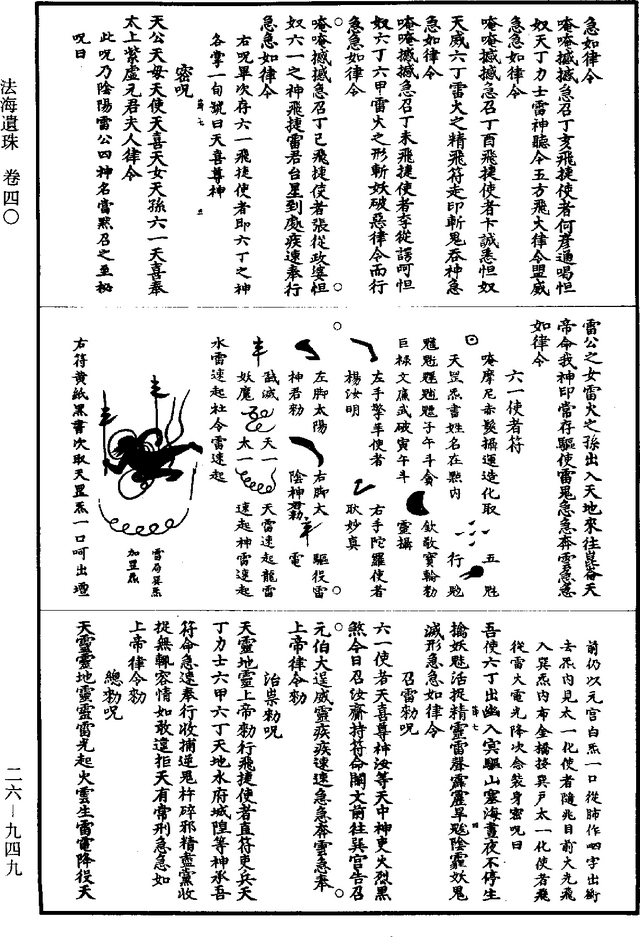 急如律令
唵唵撼撼急召丁亥飛捷使者何彥通唱怛
奴天丁力士雷神聽令五方飛火律令盟威
急急如律令
唵唵撼撼急召丁酉飛捷使者卞誠悉怛奴
天威六丁雷火之精飛符走印斬鬼吞神急
急如律令
唵唵撼撼急召丁未飛捷使者李從諤呵怛
奴六丁六甲雷火之形斬妖破惡律令而行
急急如律令
唵唵撼撼急召丁巳飛捷使者張從政婆怛
奴六一之神飛捷雷君台星到處疾速奉行
急急如律令
右呪單次存六一飛捷使者即六丁之神
各掌一旬號曰天喜尊神
密呪
天公天母天使天喜天女天孫六一天喜奉
太上紫虛元君夫人律令
此呪乃陰陽雷公四神名當默召之至祕
呪曰
雷公之女雷火之孫出入天地來往崑崙天
帝命我神印當存驅使雷鬼急急奔雲急急
如律令
六一使者符
唵摩尼赤髮攝運造化取
天罡炁書姓名在點內
巨祿文廉武破寅午斗
左手擎羊使者
楊汝明
右手陀羅使者
耿妙真
左脚太陽
神君勑
右脚太
陰神君勑
驅役雷
電
天一
太一
妖魔
天雷速起龍雷
速起神雷速起
水雷速起社令雷速起
雷局巽炁
加罡炁
右符黃紙黑書次取天罡炁一口呵出壇
前仍以元宮白炁一口從肺作呬字出衝
去炁內見太一化使者隨兆目前大光飛
入巽炁內布金橋接巽戶太一化使者飛
從雷火電光降次念裝身密呪曰
吾使六丁出幽入冥驅山塞海晝夜不停生
擒妖魁活捉精靈雷聲霹靂旱魃陰霾妖鬼
滅形急急如律令
召雷勑呪
六一使者天喜尊神汝等天中神吏火烈黑
煞今日召汝齎持符命闕文前往巽宮告召
元伯大逞威靈疾疾速速急急奔雲急奉
上帝律令勑
治祟勑呪
天靈地靈上帝勑行飛捷使者直符吏兵天
丁力士六甲六丁天地水府城隍等神承吾
符命急速奉行收捕逆鬼杵碎邪精盡黨收
捉無輒容情如敢違拒天有常刑急急如
上帝律令勑
總勑呪
天靈靈地靈靈雷光起火雲生雷電降役天
法海遺珠　卷四〇
二六—九四九